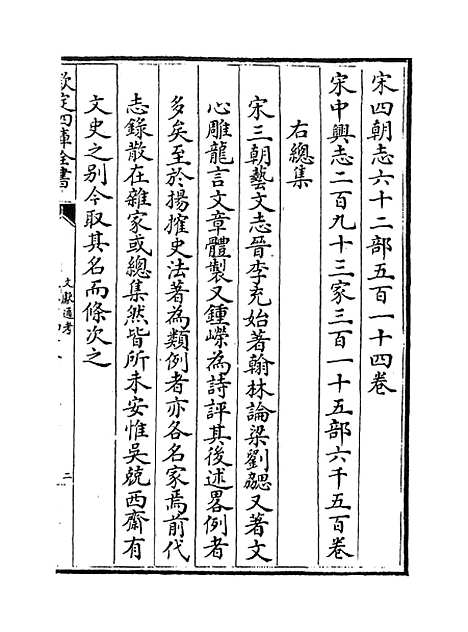 宋四朝志六十二部五百一十四卷
宋中興志二百九十三家三百一十五部六千五百卷
右總集
宋三朝藝文志晉李充始著翰林論梁劉勰又著文
心雕龍言文章體製又鍾嶸為詩評其後述畧例者
多矣至於揚搉史法著為類例者亦各名家焉前代
志錄散在雜家或總集然皆所未安惟吳兢西齋有
文史之别今取其名而條次之
欽定四庫全書
文獻通考
二